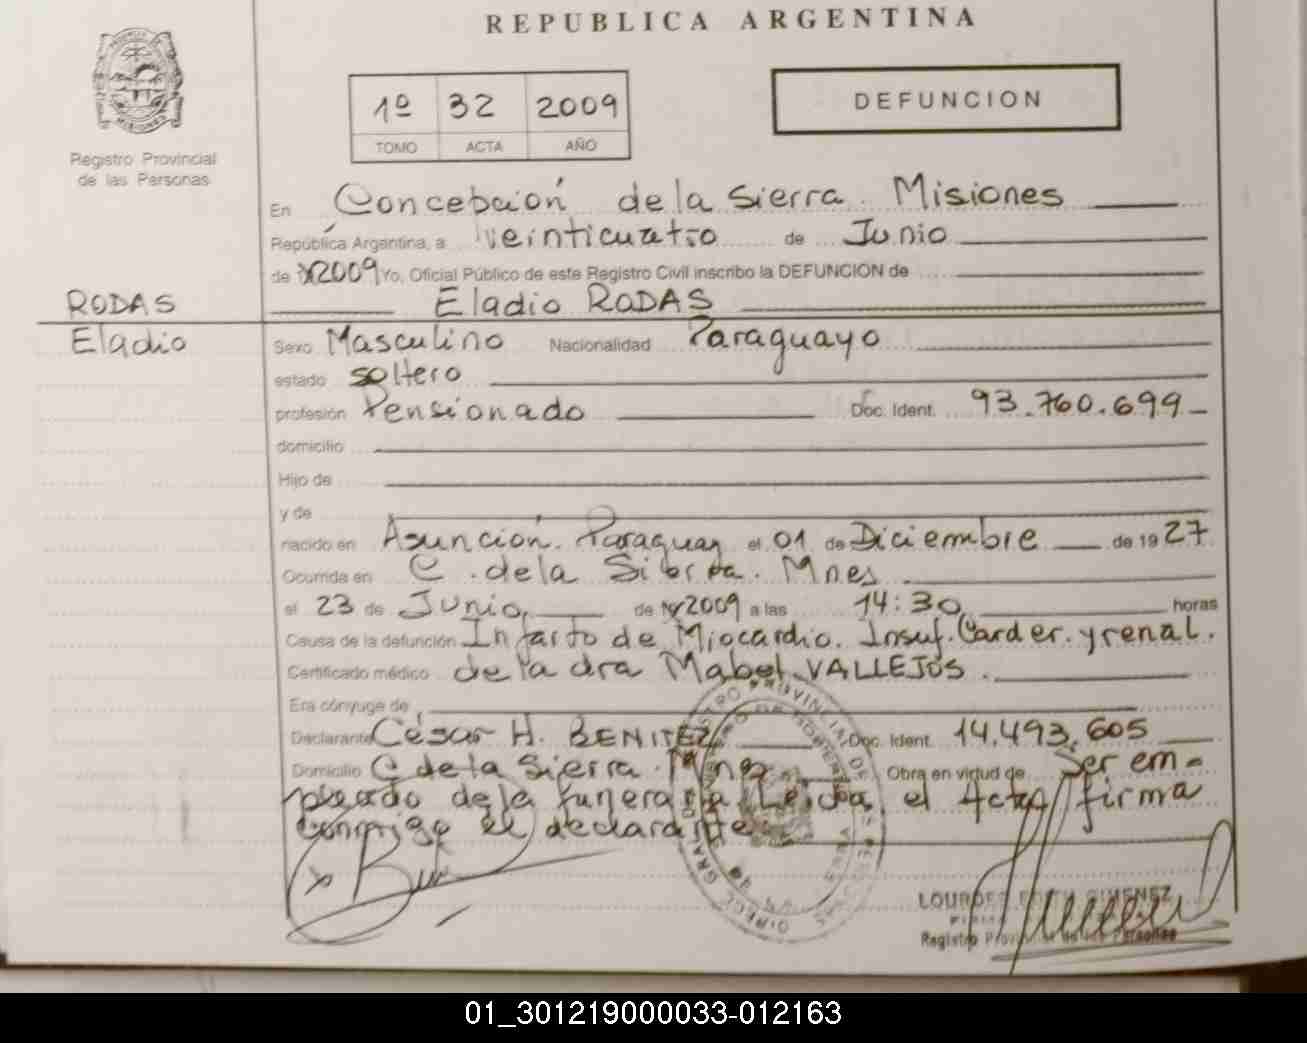 REPUBLICA ARGENTINA
1º 32 2009
DEFUNCION
TOMO ACTA AÑO
Registro Provincial
de las Personas
En Concepción de la Sierra. Misiones
República Argentina, a veinticuatro de Junio
de 2009 Yo, Oficial Público de este Registro Civil inscribo la DEFUNCION de
RODAS Eladio RODAS
Eladio Sexo Masculino Nacionalidad Paraguayo
estado soltero
profesión Pensionado Doc. Ident. 93.760.699
domicilio
Hijo de
y de
nacido en Asunción. Paraguay el 01 de Diciembre de 1927
Ocurrida en C. de la Sierra. Mnes
el 23 de Junio, de 2009 a las 14:30, horas
Causa de la defunción Infarto de Miocardio. Insuf. Carder. y renal.
Certificado médico de la dra Mabel VALLEJOS.
Era cónyuge de
Declarante César H. BENITEZ Doc. Ident. 14.493.605
Domicilio C de la Sierra. Mnes Obra en virtud de Ser em-
pleado de la funeraria Leída el Acta firma
conmigo el declarante
LOURDES GIMENEZ
Registro Provincial de las Personas
01_301219000033-012163